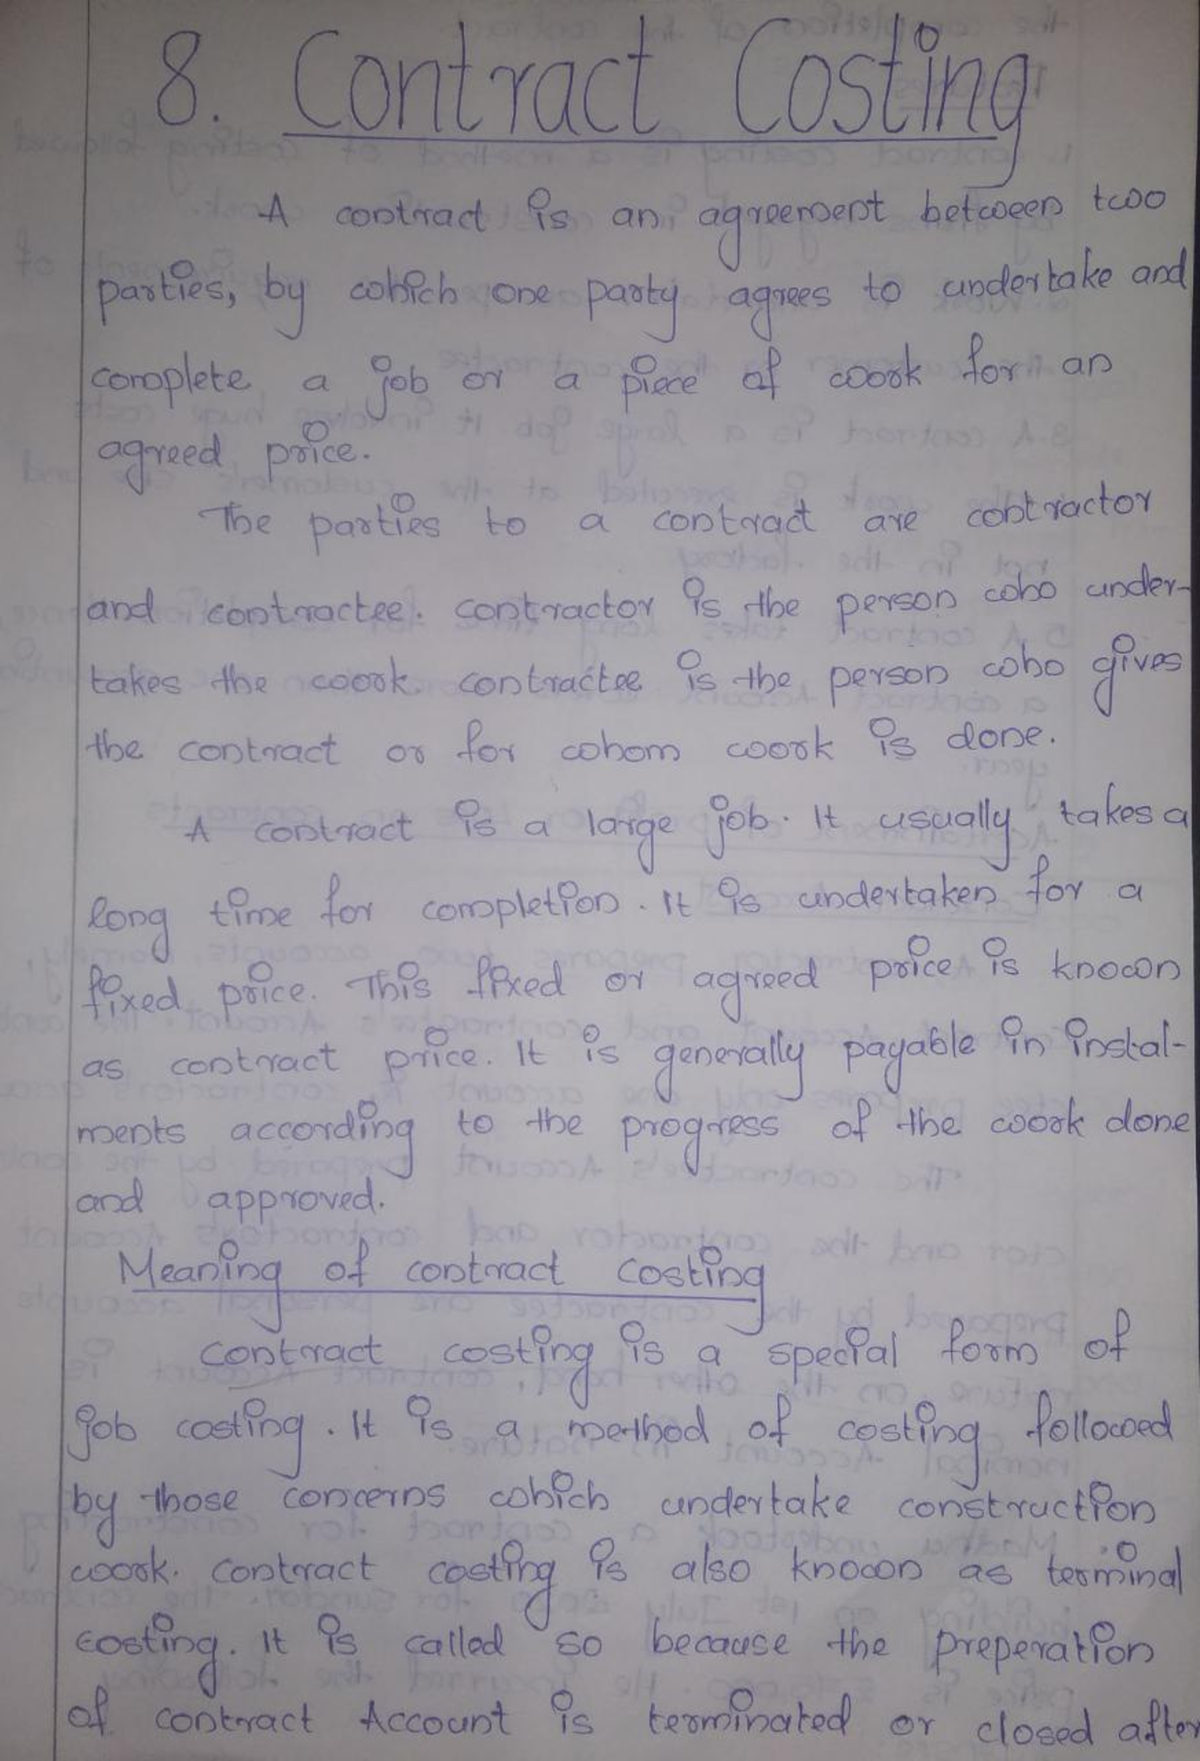 8. Contract Costing
A contract is an agreement between two
parties, by which one party agrees to undertake and
complete a job or a piece of work for an
agreed price.
The parties to a contract are contractor
and contractee. contractor is the person who under-
takes the work. contractee is the person who gives
the contract or for whom work is done.
A contract is a large job. It usually takes a
long time for completion. It is undertaken for a
fixed price. This fixed or agreed price is known
as contract price. It is generally payable in instal-
ments according to the progress of the work done
and approved.
Meaning of contract costing
contract costing is a special form of
job costing. It is a method of costing followed
by those concerns which undertake construction
work. contract costing is also known as terminal
costing. It is called so because the preperation
of contract Account is terminated or closed after